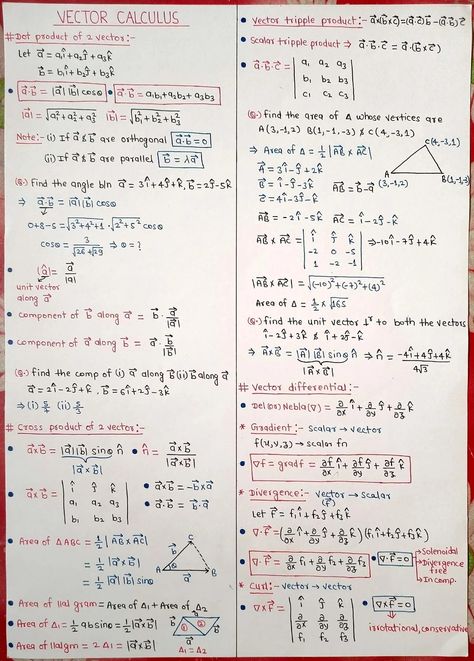 VECTOR CALCULUS
# Dot product of 2 vector:-
Let a⃗ = a₁î + a₂ĵ + a₃k̂
b⃗ = b₁î + b₂ĵ + b₃k̂
• a⃗·b⃗ = |a⃗||b⃗| cosθ • a⃗·b⃗ = a₁b₁+a₂b₂+a₃b₃
|a⃗| = √(a₁²+a₂²+a₃²) |b⃗| = √(b₁²+b₂²+b₃²)
Note:- (i) If a⃗ & b⃗ are orthogonal a⃗·b⃗ = 0
(ii) If a⃗ & b⃗ are parallel b⃗ = λa⃗
(Q-) Find the angle b/n a⃗ = 3î+4ĵ+k̂, b⃗ = 2ĵ-5k̂
⇒ a⃗·b⃗ = |a⃗||b⃗| cosθ
0+8-5 = √(3²+4²+1) · √(2²+5²) cosθ
cosθ = 3/(√26 √29) ⇒ θ = ?
• (â) = a⃗/|a⃗|
unit vector
along a⃗
• component of b⃗ along a⃗ = b⃗ · a⃗/|a⃗|
• component of a⃗ along b⃗ = a⃗ · b⃗/|b⃗|
(Q-) find the comp of (i) a⃗ along b⃗ (ii) b⃗ along a⃗
a⃗ = 2î-2ĵ+k̂, b⃗ = 6î+2ĵ-3k̂
⇒ (i) 5/7 (ii) 5/3
# Cross product of 2 vector:-
• a⃗×b⃗ = |a⃗||b⃗| sinθ n̂ • n̂ = a⃗×b⃗/|a⃗×b⃗|
|a⃗×b⃗|
• a⃗×b⃗ = | î ĵ k̂ | • a⃗×b⃗ = -b⃗×a⃗
| a₁ a₂ a₃ | • a⃗·b⃗ = b⃗·a⃗
| b₁ b₂ b₃ |
• Area of ΔABC = 1/2 |AB⃗×AC⃗|
= 1/2 |a⃗×b⃗|
= 1/2 |a⃗||b⃗| sinθ
A B C a⃗ b⃗
• Area of llal gram = Area of Δ₁ + Area of Δ₂
• Area of Δ₁ = 1/2 ab sinθ = 1/2 |a⃗×b⃗|
• Area of llalgm = 2 Δ₁ = |a⃗×b⃗|
b⃗ ① ② a⃗
Δ₁ = Δ₂
• Vector tripple product:- a⃗×(b⃗×c⃗) = (a⃗·c⃗)b⃗ - (a⃗·b⃗)c⃗
• Scalar tripple product ⇒ a⃗·b⃗·c⃗ = a⃗·(b⃗×c⃗)
• a⃗·b⃗·c⃗ = | a₁ a₂ a₃ |
| b₁ b₂ b₃ |
| c₁ c₂ c₃ |
(Q-) find the area of Δ whose vertices are
A(3,-1,2) B(1,-1,-3) & C(4,-3,1)
⇒ Area of Δ = 1/2 |AB⃗×AC⃗|
A⃗ = 3î-ĵ+2k̂
B⃗ = î-ĵ-3k̂ AB⃗ = b⃗-a⃗
C⃗ = 4î-3ĵ-k̂
C(4,-3,1)
A (3,-1,2) B(1,-1,-3)
AB⃗ = -2î-5k̂ AC⃗ = î-2ĵ-k̂
AB⃗×AC⃗ = | î ĵ k̂ | ⇒ -10î-7ĵ+4k̂
| -2 0 -5 |
| 1 -2 -1 |
|AB⃗×AC⃗| = √((-10)²+(-7)²+(4)²)
Area of Δ = 1/2 × √165
(Q-) find the unit vector ⊥r to both the vectors
î-2ĵ+3k̂ & î+2ĵ-k̂
⇒ A⃗×B⃗ = |A⃗||B⃗| sinθ n̂ ⇒ n̂ = (-4î+4ĵ+4k̂)/(4√3)
|A⃗×B⃗|
# Vector differential:-
• Del (or) Nebla (∇) = ∂/∂x î + ∂/∂y ĵ + ∂/∂z k̂
* Gradient:- scalar → vector
f(x,y,z) → scalar fn
• ∇f = gradf = ∂f/∂x î + ∂f/∂y ĵ + ∂f/∂z k̂
* Divergence:- vector → scalar
(f⃗)
Let f⃗ = f₁î+f₂ĵ+f₃k̂
• ∇·f⃗ = (∂/∂x î + ∂/∂y ĵ + ∂/∂z k̂)(f₁î+f₂ĵ+f₃k̂)
• ∇·f⃗ = ∂/∂x f₁ + ∂/∂y f₂ + ∂/∂z f₃ • ∇·f⃗ = 0
→ Solenoidal
→ Divergence free
→ Incomp.
* Curl:- vector → vector
• ∇×f⃗ = | î ĵ k̂ | • ∇×f⃗ = 0
| ∂/∂x ∂/∂y ∂/∂z |
| f₁ f₂ f₃ |
irrotational, conservative